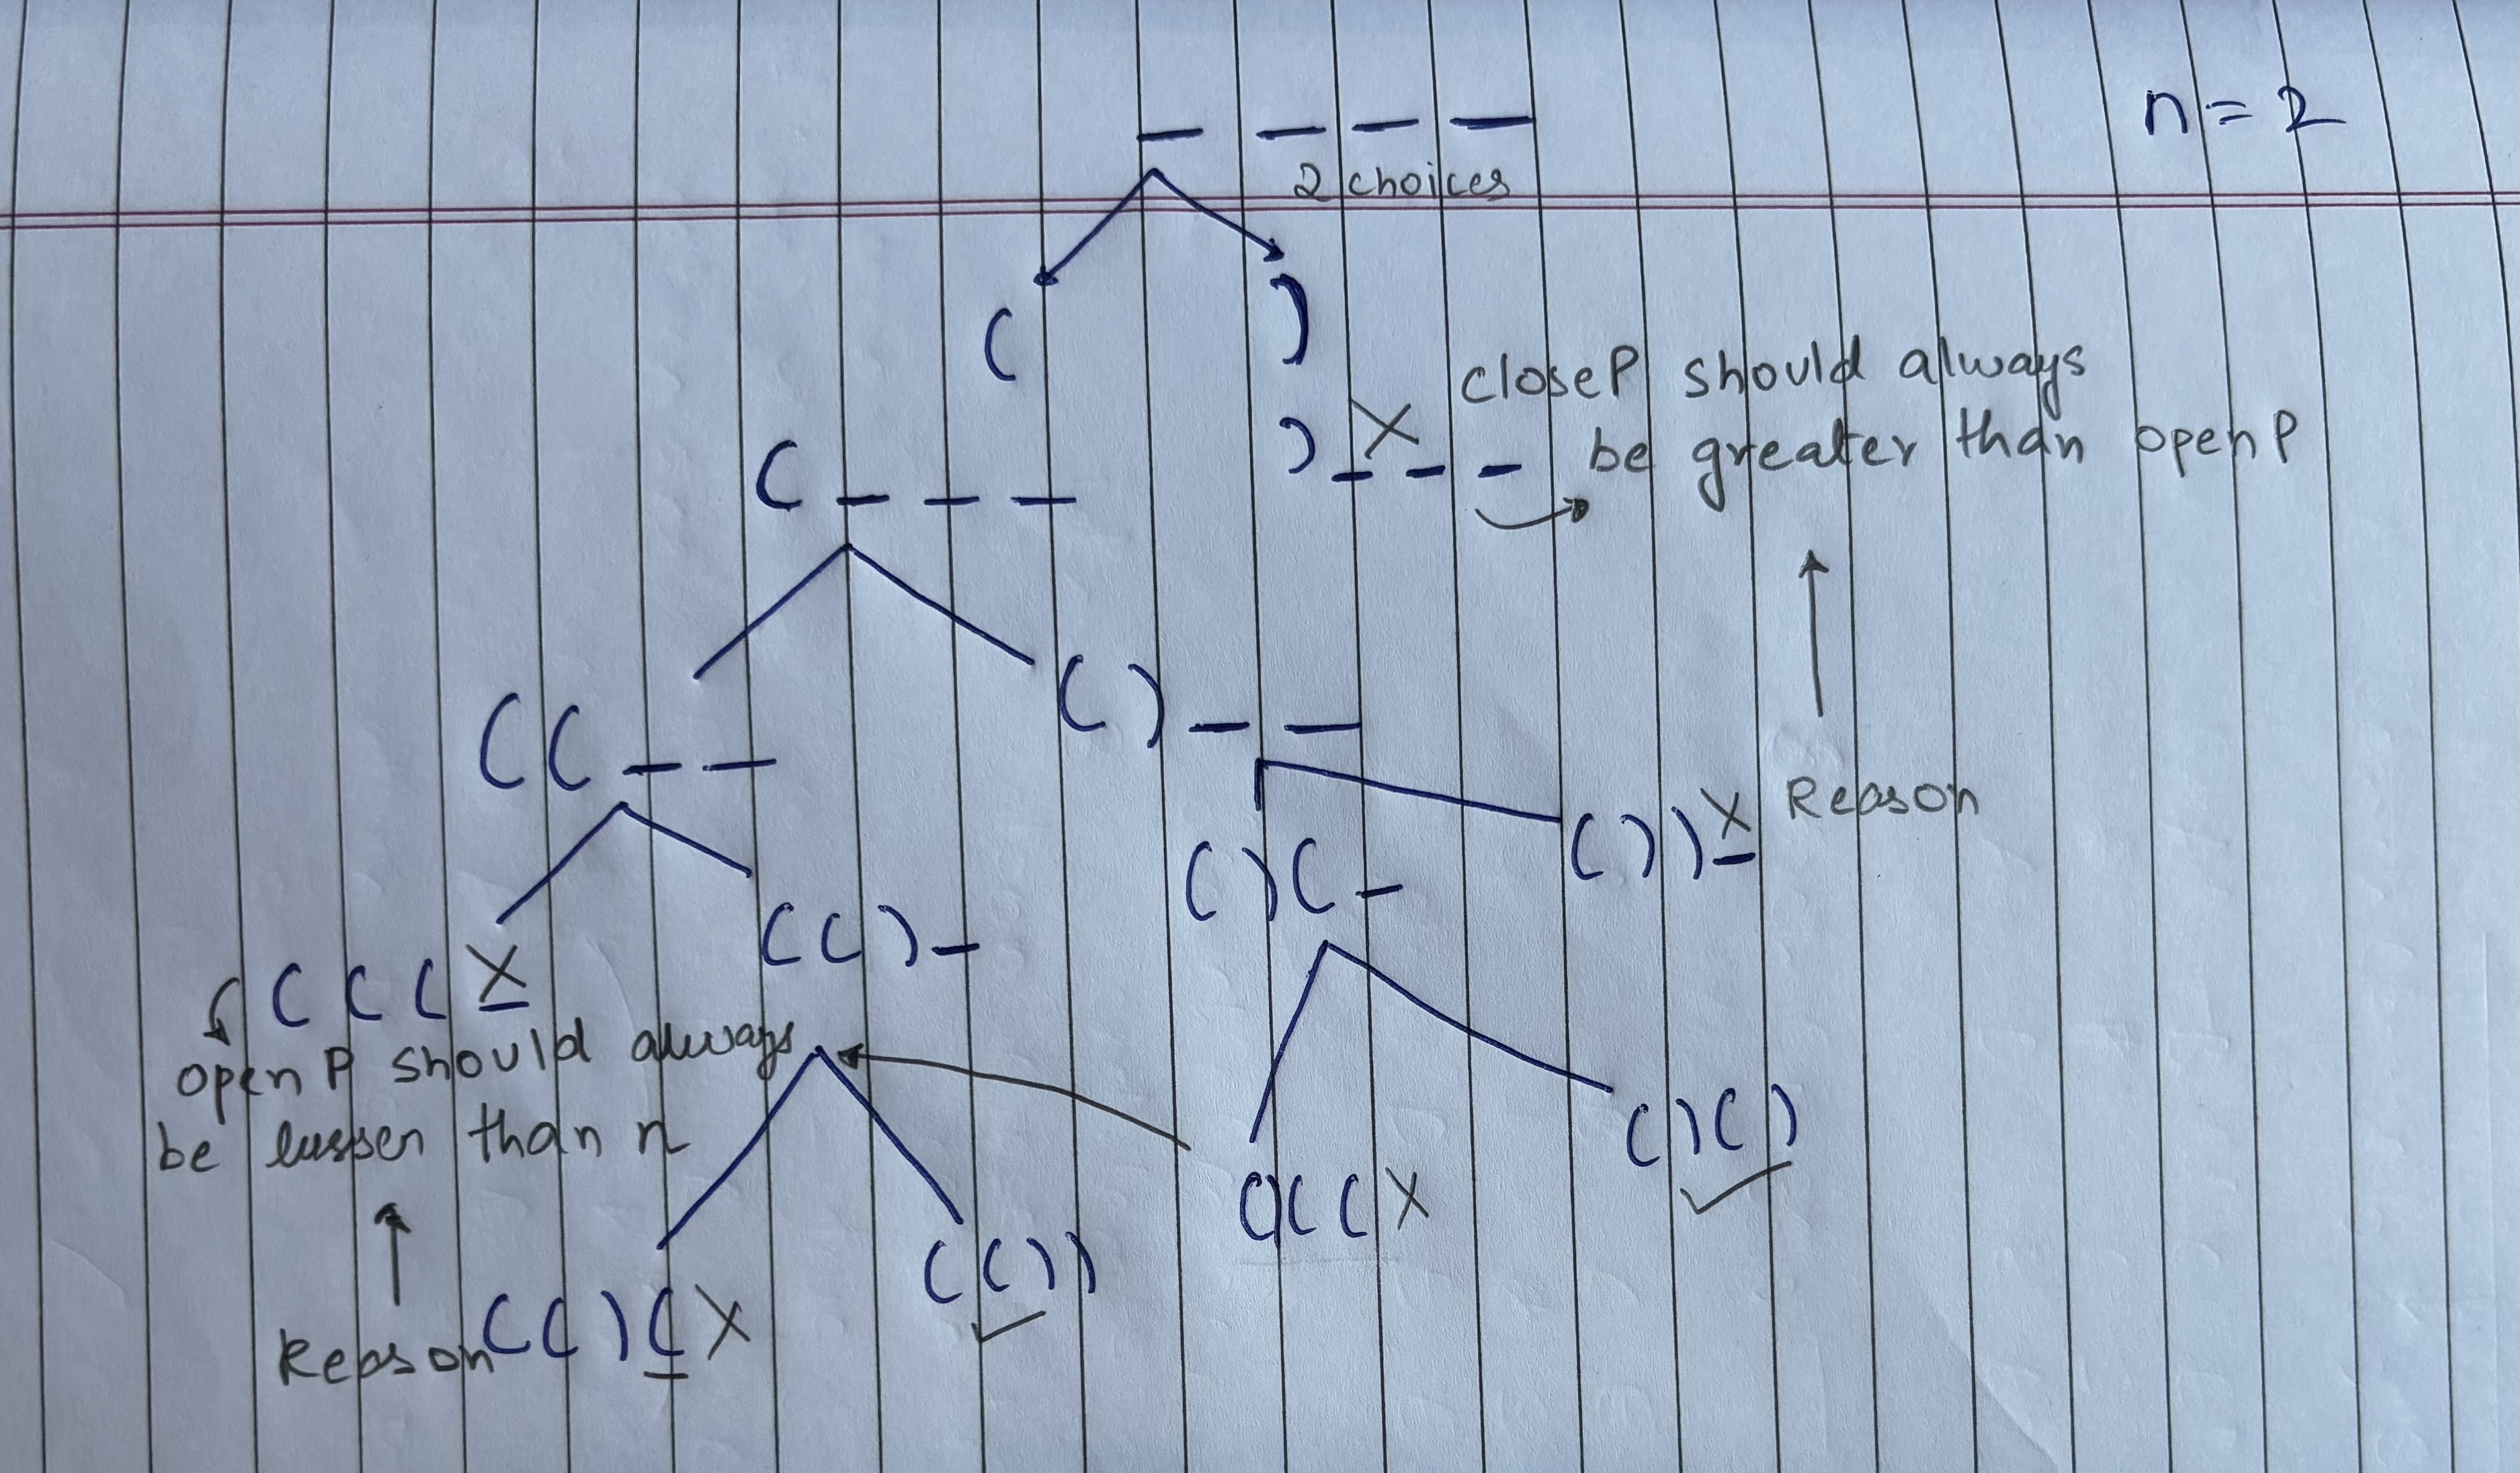 n = 2
_ _ _ _
2 choices
( )
) _ _ _ X
closeP should always
be greater than openP
( _ _ _
( ) _ _
( ( _ _
Reason
( ) ) _ X
( ) ( _
( ( ) _
( ( ( _ X
openP should always
be lesser than n
( ) ( )
( ) ( ( X
( ( ) )
( ( ) ( X
Reason